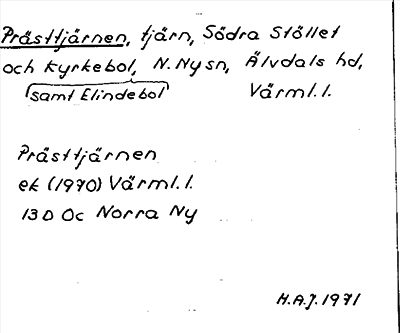 Prästtjärnen, tjärn, Södra Stöllet
och Kyrkebol, N. Ny sn, Älvdals hd,
samt Elindebol
Värml. l.
Prästtjärnen
ek (1970) Värml. l.
13 D 0c Norra Ny
H.A.J. 1971